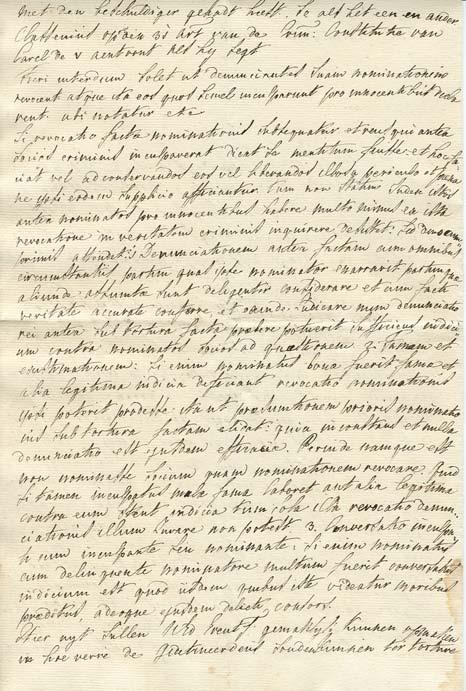 met den beschuldiger gehadt heeft. te als het een en ander
Classenius op den 31 Art van de Crim: Constitutie van
Carel de V aentoont als hij segt
fieri interdum solet ut denunciantes suam nominationem
revocent atque ita eos quos semel inculparunt pro innocentibus decla
rent. uti notatur etc
Si revocatio facta nominationis subsequatur et reus qui antea
socios criminis inculpaverat dicat se mentitum fuisse et hoc fa
ciat vel ad conservandos eos vel liberandos illos a periculo et
ne ipsi eodem supplicio afficiantur. tam non statim Judex illos
antea nominatos pro innocentibus habere multo minus ex ista
revocatione in veritatem criminis inquirere desistet. sed
primis attendet 1 Denunciationem antea factam cum omnibus
circumstantiis partim quas ipse nominator enarravit partim quae
aliunde assumtae sunt diligenter considerare et cum facti
veritate accurate conferre, et Judicare nam denunciatio
rei antea sub tortura facta praebere potuerit sufficiens indici
um contra nominatos socios ad quaestionem 2. famam et
existimationem: si enim nominatus bona fuerit fama et
alia legitima indicia deficiant revocatio nominationis
ipsi poterit prodesse ita ut praesumtionem prioris nominatio
nis sub tortura factam elidat: quia inconstans et nulla
denunciatio est ejusdem efficaciae. Perinde namque est
non nominasse socium quam nominationem revocare. Quod
si tamen inculpatus mala fama laboret aut alia legitima
contra eum stent indicia tum sola ista revocatio denun-
ciationis illum juvare non potest 3. Conversatio inculpa
ti cum inculpante seu nominante; si enim nominatus
cum delinquente nominatore multum fuerit conversatus
indicium est quod iisdem quibus iste videatur moribus
praeditus, adeoque ejusdem delicti consors.
Hier uyt sullen UEd gemakkelijk kunnen opmaken
in hoe verre de Gedetineerdens souden kunnen ter torture